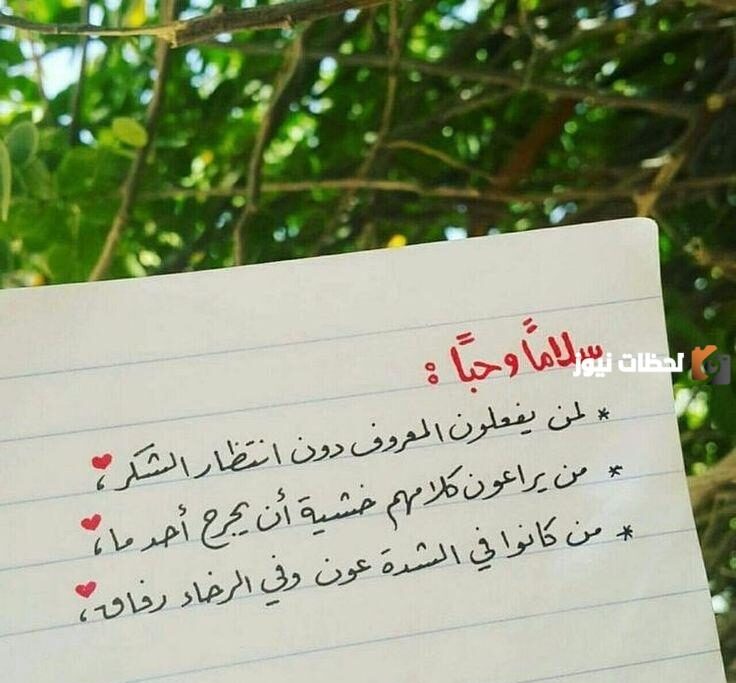 سلامًا وحبًا :
لحظات نيوز
* لمن يفعلون المعروف دون انتظار الشكر،
* من يراعون كلامهم خشية أن يجرح أحد ما،
* من كانوا في الشدة عون وفي الرخاء رفاق،